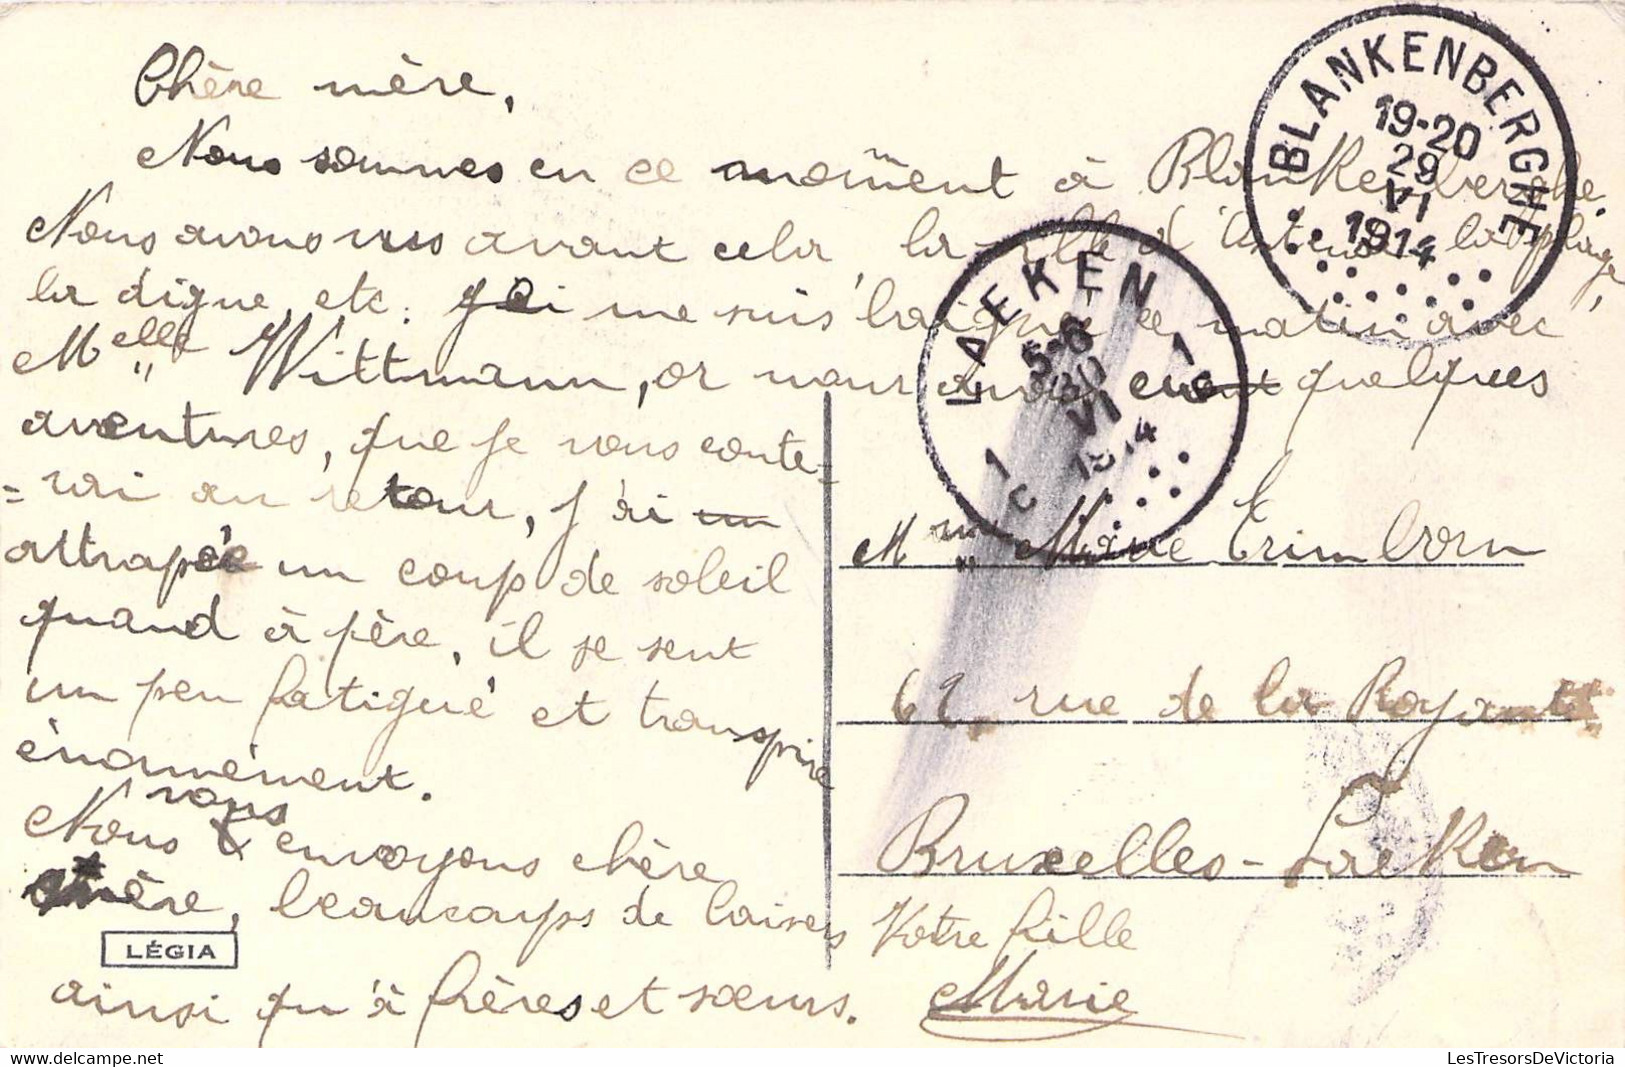 Chère mère,
Nous sommes en ce moment à Blankenberghe.
Nous avons vus avant cela, la ville d' la plage,
la digue, etc. j'ai me suis baigné ce matin avec
Melle Wittmann, or nous avons eue quelques
aventures, que je vous conte-
=rai au retour, j'ai un
attrapée un coup de soleil
quand à père, il se sent
un peu fatigué et transpire
énormément.
Nous vous envoyons chère
mère, beaucoups de baisers
ainsi qu'à frères et sœurs.
Votre fille
Marie
Mme Marie Trimborn
62, rue de la Royauté
Bruxelles-Laeken
BLANKENBERGHE
19-20
29
VI
1914
LAEKEN
5-6
30
VI
1914
1 1
C C
LÉGIA
Delcampe.net
LesTresorsDeVictoria